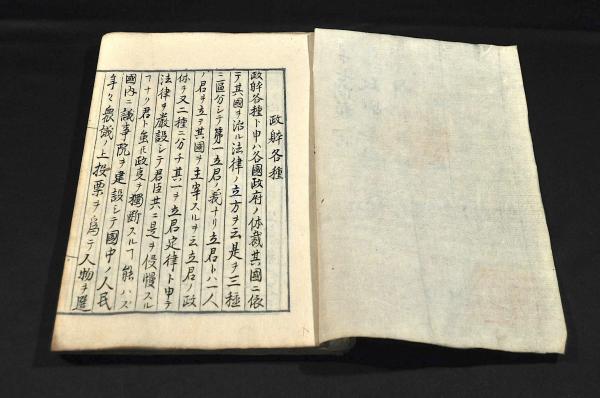 政躰各種
政躰各種ト申ハ各國政府ノ体裁其國ニ依
テ其國ヲ治ル法律ノ立方ヲ云是ヲ三種
ニ區分シテ第一立君ノ裁ナリ立君トハ一人
ノ君ヲ立ヲ其國ヲ主宰スルヲ云立君ノ政
体ヲ又二種ニ分チ其一ヲ立君定律ト申テ
法律ヲ嚴設シテ君臣共ニ是ヲ侵慢スル
ヿナリ君ト虽𪜈政叓ヲ獨断スルヿ能ハズ
國内ニ議事院ヲ建設シテ國中ノ人民
爭々衆議ノ上投票ヲ為テ人物ヲ選